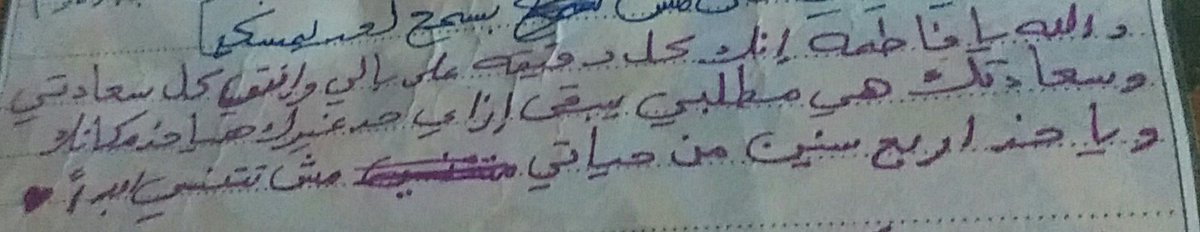 بسمح لحد يمسكي
والله يا فاطمة إنك كل دقيقة على بالي وانتي كل سعادتي
وسعادتك هي مطلبي يبقى إزاي حد غيرك هياخد مكانك
وياخد اربع سنين من حياتي مش تتنسي ابداً